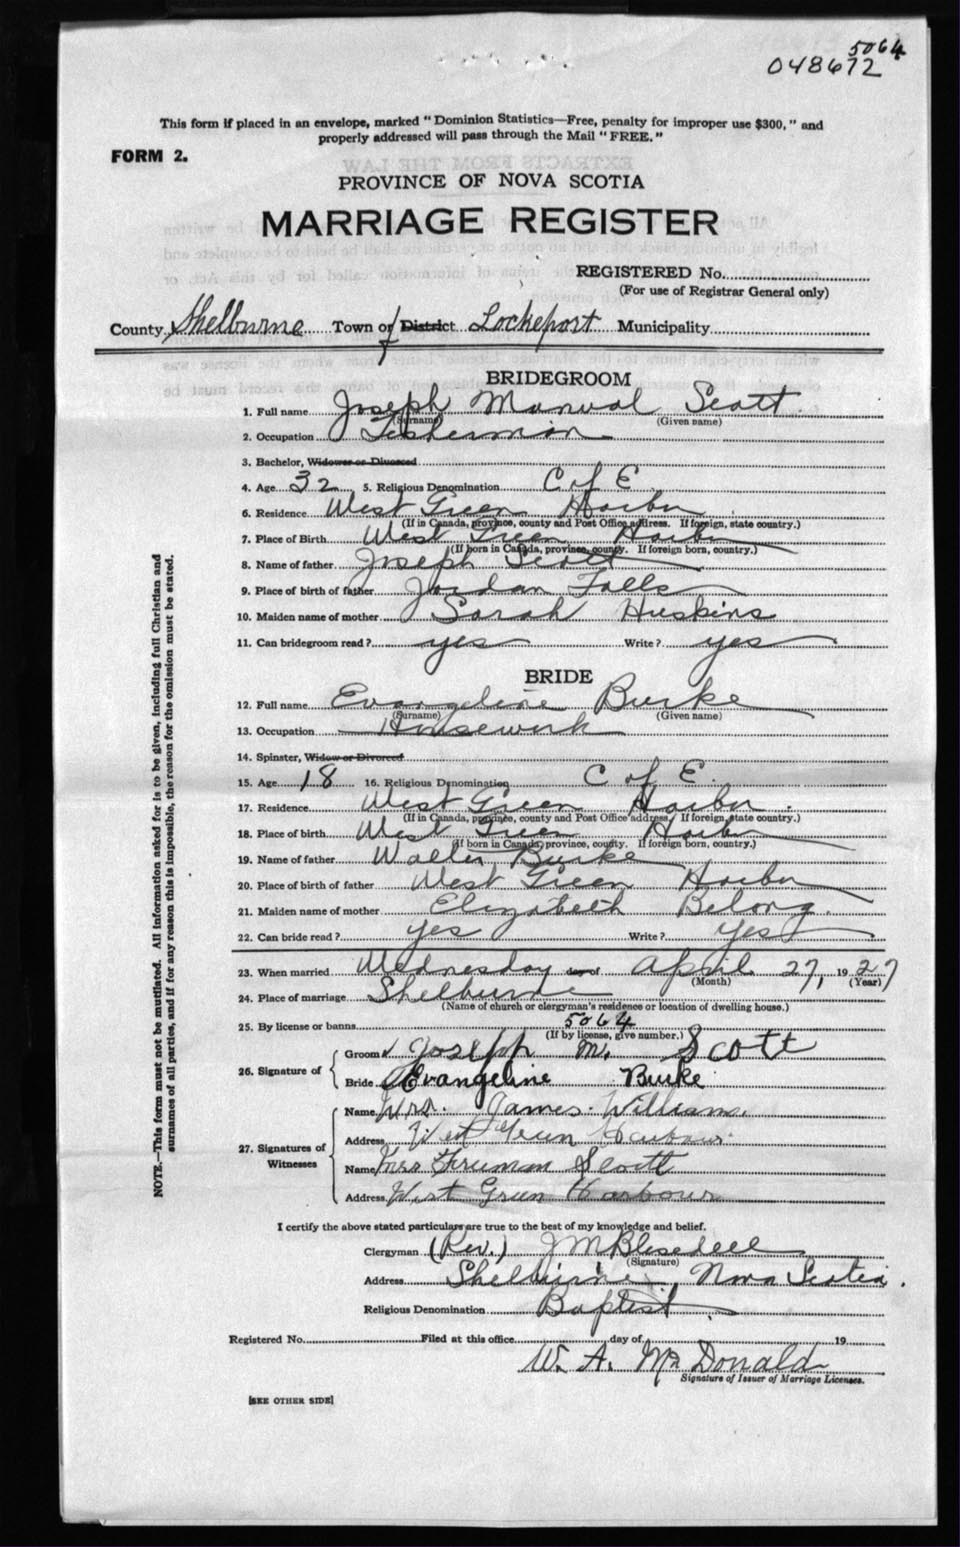 5064
048672
This form if placed in an envelope, marked "Dominion Statistics—Free, penalty for improper use $300," and
properly addressed will pass through the Mail "FREE."
FORM 2.
PROVINCE OF NOVA SCOTIA
MARRIAGE REGISTER
REGISTERED No.
(For use of Registrar General only)
County Shelburne Town of District Lockeport Municipality
BRIDEGROOM
1. Full name Joseph Manual Scott
(Surname) (Given name)
2. Occupation Fisherman
3. Bachelor, Widower or Divorced
4. Age 32 5. Religious Denomination C of E
6. Residence West Green Harbor
(If in Canada, province, county and Post Office address. If foreign, state country.)
7. Place of Birth West Green Harbor
(If born in Canada, province, county. If foreign born, country.)
8. Name of father Joseph Scott
9. Place of birth of father Jordan Falls
10. Maiden name of mother Sarah Huskins
11. Can bridegroom read? yes Write? yes
BRIDE
12. Full name Evangeline Burke
(Surname) (Given name)
13. Occupation Housework
14. Spinster, Widow or Divorced
15. Age 18 16. Religious Denomination C of E.
17. Residence West Green Harbor.
(If in Canada, province, county and Post Office address. If foreign, state country.)
18. Place of birth West Green Harbor
(If born in Canada, province, county. If foreign born, country.)
19. Name of father Walter Burke
20. Place of birth of father West Green Harbor
21. Maiden name of mother Elizabeth Belong.
22. Can bride read? yes Write? yes
23. When married Wednesday April 27, 1927
(Month) (Year)
24. Place of marriage Shelburne
(Name of church or clergyman's residence or location of dwelling house.)
25. By license or banns 5064
(If by license, give number.)
26. Signature of
Groom Joseph M. Scott
Bride Evangeline Burke
27. Signatures of Witnesses
Name Mrs. James Williams.
Address West Green Harbour.
Name Mrs Freeman Scott
Address West Green Harbour
I certify the above stated particulars are true to the best of my knowledge and belief.
Clergyman (Rev.) J M Blesedell
(Signature)
Address Shelburne, Nova Scotia.
Religious Denomination Baptist
Registered No. Filed at this office day of 19
W. A. McDonald
Signature of Issuer of Marriage Licenses.
[SEE OTHER SIDE]
NOTE.—This form must not be mutilated. All information asked for is to be given, including full Christian and
surnames of all parties, and if for any reason this is impossible, the reason for the omission must be stated.